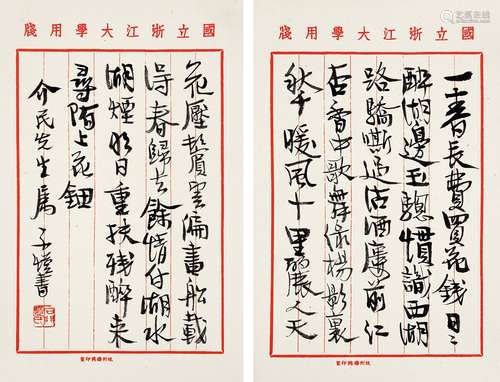 國立浙江大學用牋
一春長費買花錢日〻
醉湖邊玉驄慣識西湖
路驕嘶過沽酒廔前红
杏香中歌舞綠楊影裏
秋千暖風十里麗人天
國立浙江大學用牋
花壓鬢雲偏畫船載
得春歸去餘情付湖水
湖煙明日重扶殘醉来
尋陌上花鈿
介民先生屬 子愷書